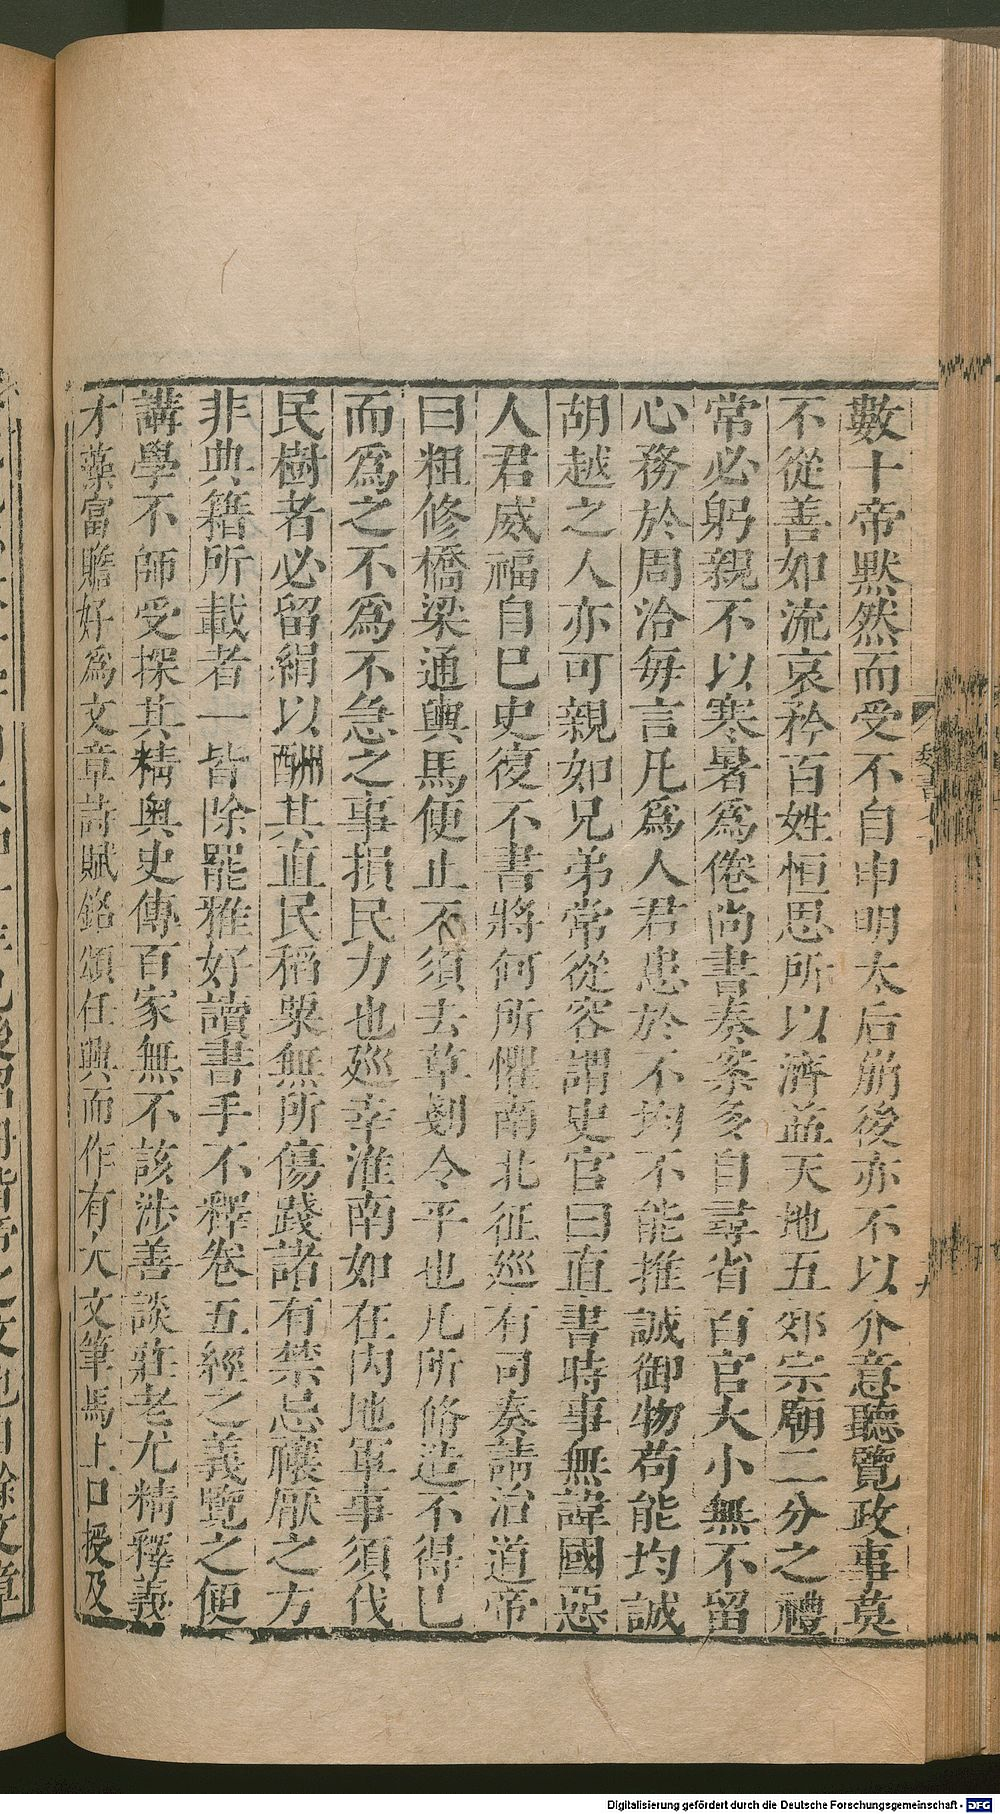 數十帝默然而受不自申明太后崩後亦不以介意聽覽政事莫
不從善如流哀矜百姓恒思所以濟益天地五郊宗廟二分之禮
常必躬親不以寒暑爲倦尚書奏案多自尋省百官大小無不留
心務於周洽每言凡爲人君患於不均不能推誠御物苟能均誠
胡越之人亦可親如兄弟常從容謂史官曰直書時事無諱國惡
人君威福自巳史復不書將何所懼南北征巡有司奏請治道帝
曰粗修橋梁通輿馬便止不須去草剗令平也凡所脩造不得已
而爲之不爲不急之事損民力也巡幸淮南如在内地軍事須伐
民樹者必留絹以酬其直民稻粟無所傷踐諸有禁忌禳厭之方
非典籍所載者一皆除罷雅好讀書手不釋卷五經之義覽之便
講學不師受探其精奥史傳百家無不該涉善談莊老尤精釋義
才藻富贍好爲文章詩賦銘頌任興而作有大文筆馬上口授及
Digitalisierung gefördert durch die Deutsche Forschungsgemeinschaft - DFG